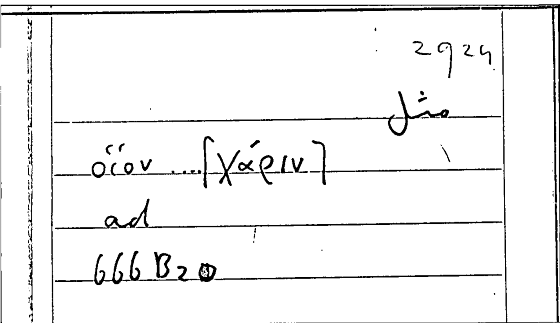 2924
مثل
οἷον ....[χάριν]
ad
666 B20